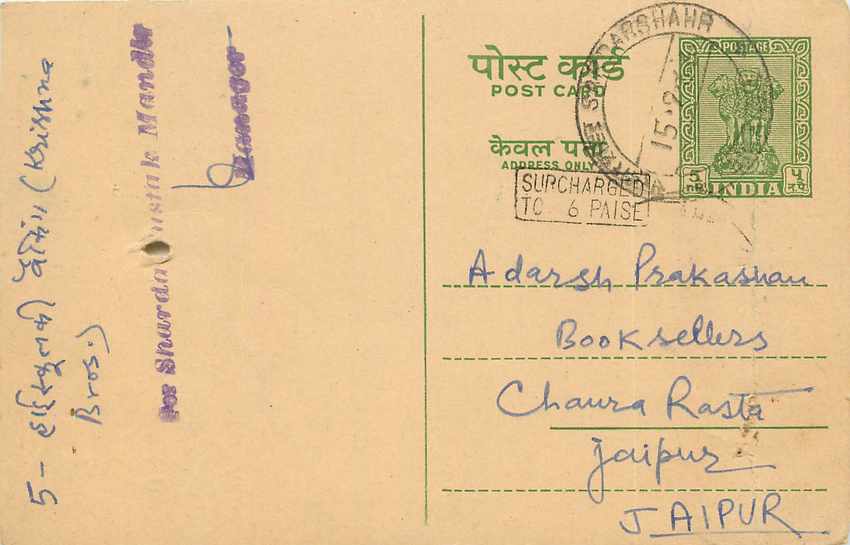 5 - हाईस्कूल की (Krishna
Bros.)
For Sharda Pustak Mandir
Manager
पोस्ट कार्ड
POST CARD
केवल पता
ADDRESS ONLY
SARDARSHAHR
15
POSTAGE
5
INDIA
५
SURCHARGED
TO 6 PAISE
Adarsh Prakashan
Booksellers
Chaura Rasta
Jaipur
JAIPUR